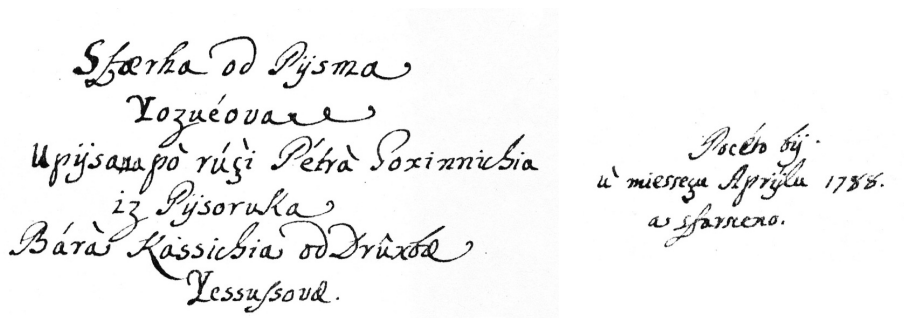 Sfærha od Pijsma
Yozuéova
Upijsana pò rúzi Pétrà Soxinnichia
iz Pijsoruka
Bárà Kàssichia od Drûxbæ
Yessussovæ.
Pocéto bij
ù miessezu Aprijlu 1788.
a sfarsceno.